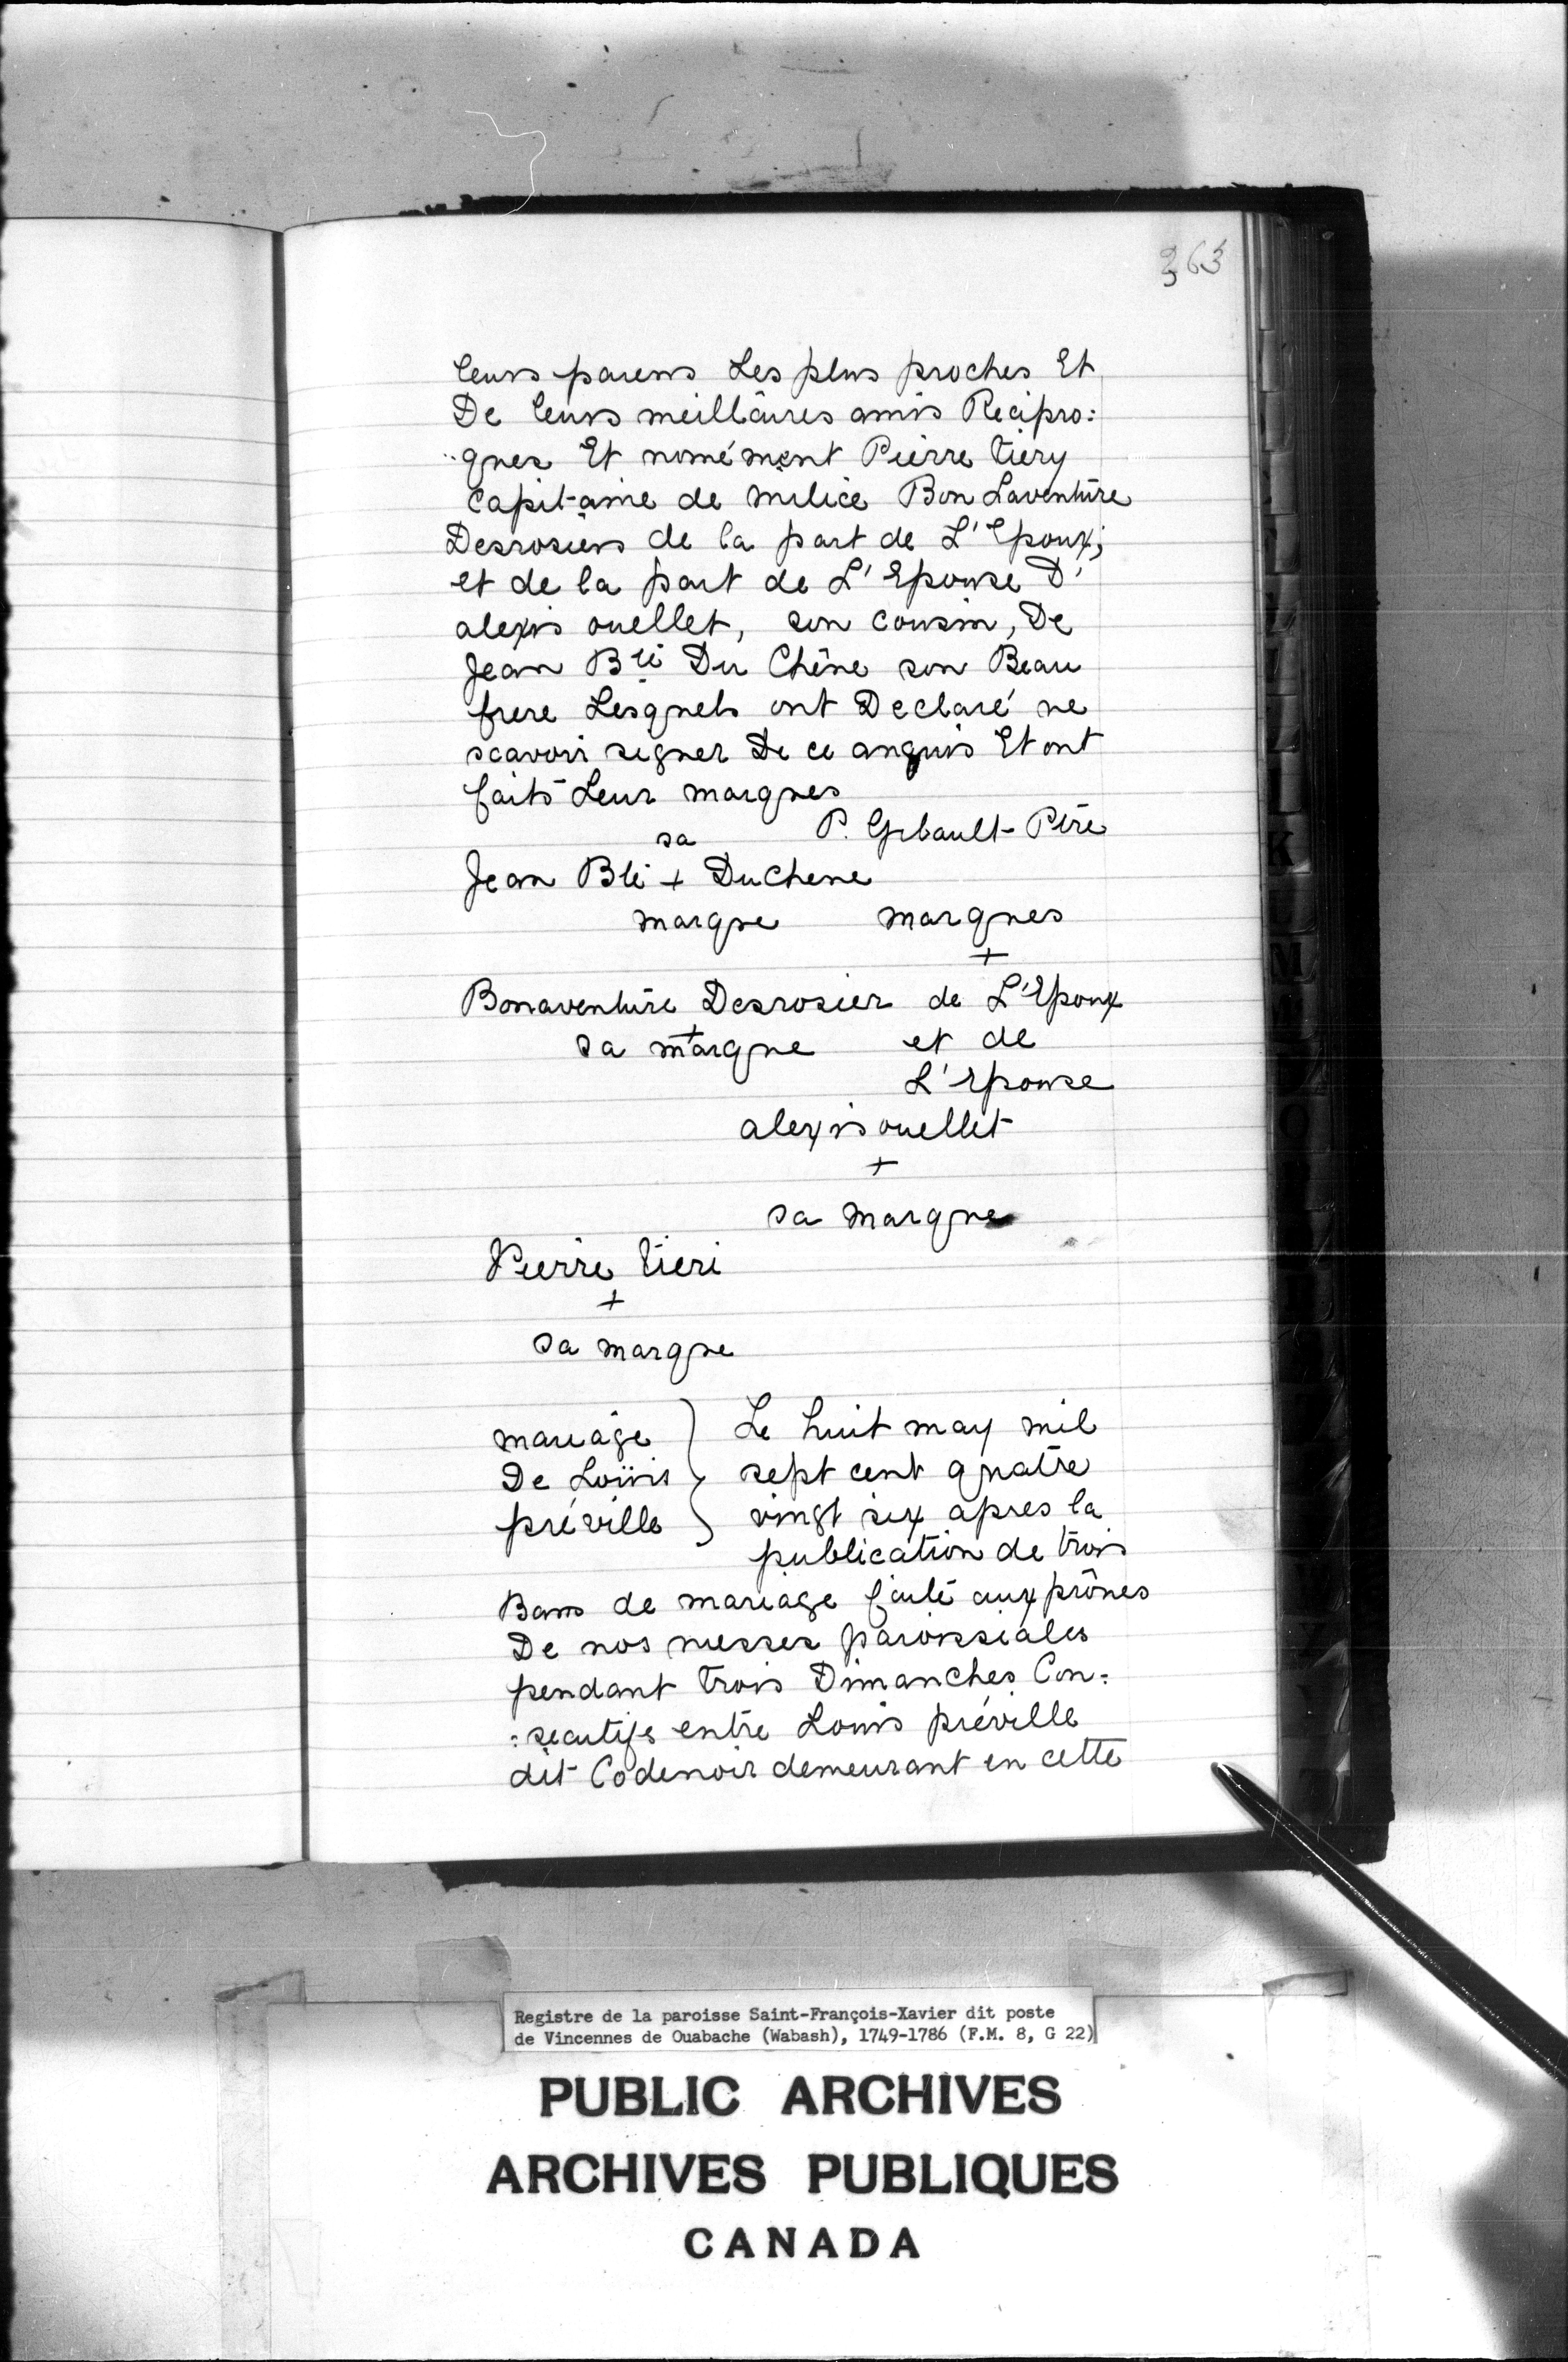 363
leurs parens Les plus proches Et
De leurs meillâures amis Recipro:
:ques Et nomément Pierre tiery
capitaine de milice Bon Laventure
Desrosiers de la part de L'Epoux,
et de la part de L'Epouse D'
alexis ouellet, son cousin, De
Jean Bte Du Chêne son Beau
frere Lesquels ont Declaré ne
scavoir signer De ce anquis Et ont
faits Leur marques
sa P. Gibault Ptre
Jean Bte + DuChene
marque marques
+
Bonaventure Desrosier de L'Epoux
+
sa marque et de
L'Epouse
alexis ouellet
+
sa marque
Pierre tieri
+
sa marque
mariage } Le huit may mil
De Loüis } sept cent quatre
préville } vingt six apres la
publication de trois
Bans de mariage faite aux prônes
De nos messes paroissiales
pendant trois Dimanches Con:
:secutifs entre Louis préville
dit Codenoir demeurant en cette
K
M
Registre de la paroisse Saint-François-Xavier dit poste
de Vincennes de Ouabache (Wabash), 1749-1786 (F.M. 8, G 22)
PUBLIC ARCHIVES
ARCHIVES PUBLIQUES
CANADA